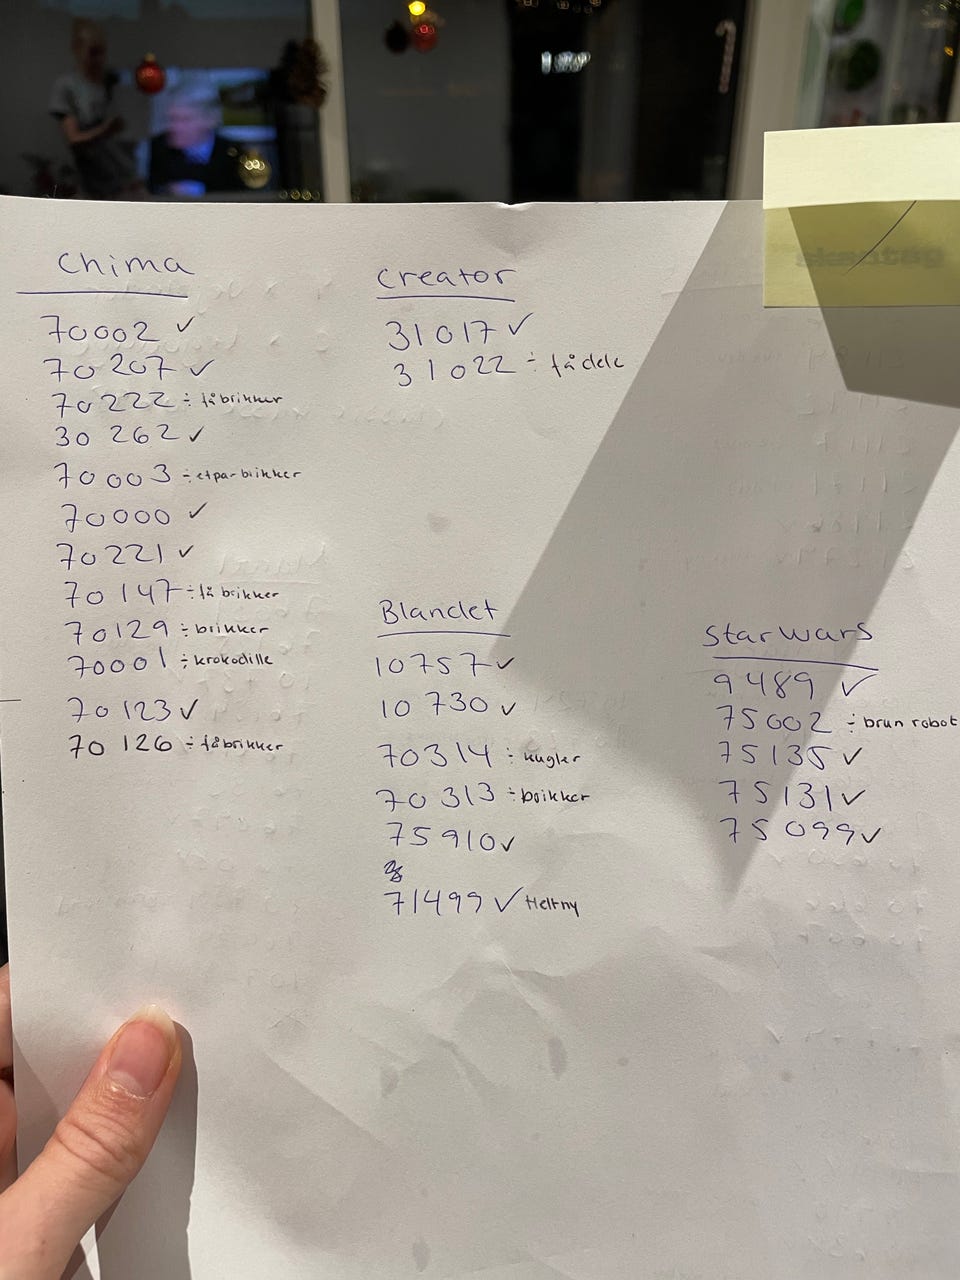 Chima
70002 ✓
70207 ✓
70222 ÷ få brikker
30262 ✓
70003 ÷ et par brikker
70000 ✓
70221 ✓
70147 ÷ få brikker
70129 ÷ brikker
70001 ÷ krokodille
70123 ✓
70126 ÷ få brikker
Creator
31017 ✓
31022 ÷ få dele
Blandet
10757 ✓
10730 ✓
70314 ÷ kugler
70313 ÷ brikker
75910 ✓
71499 ✓ Helt ny
Star Wars
9489 ✓
75002 ÷ brun robot
75135 ✓
75131 ✓
75099 ✓